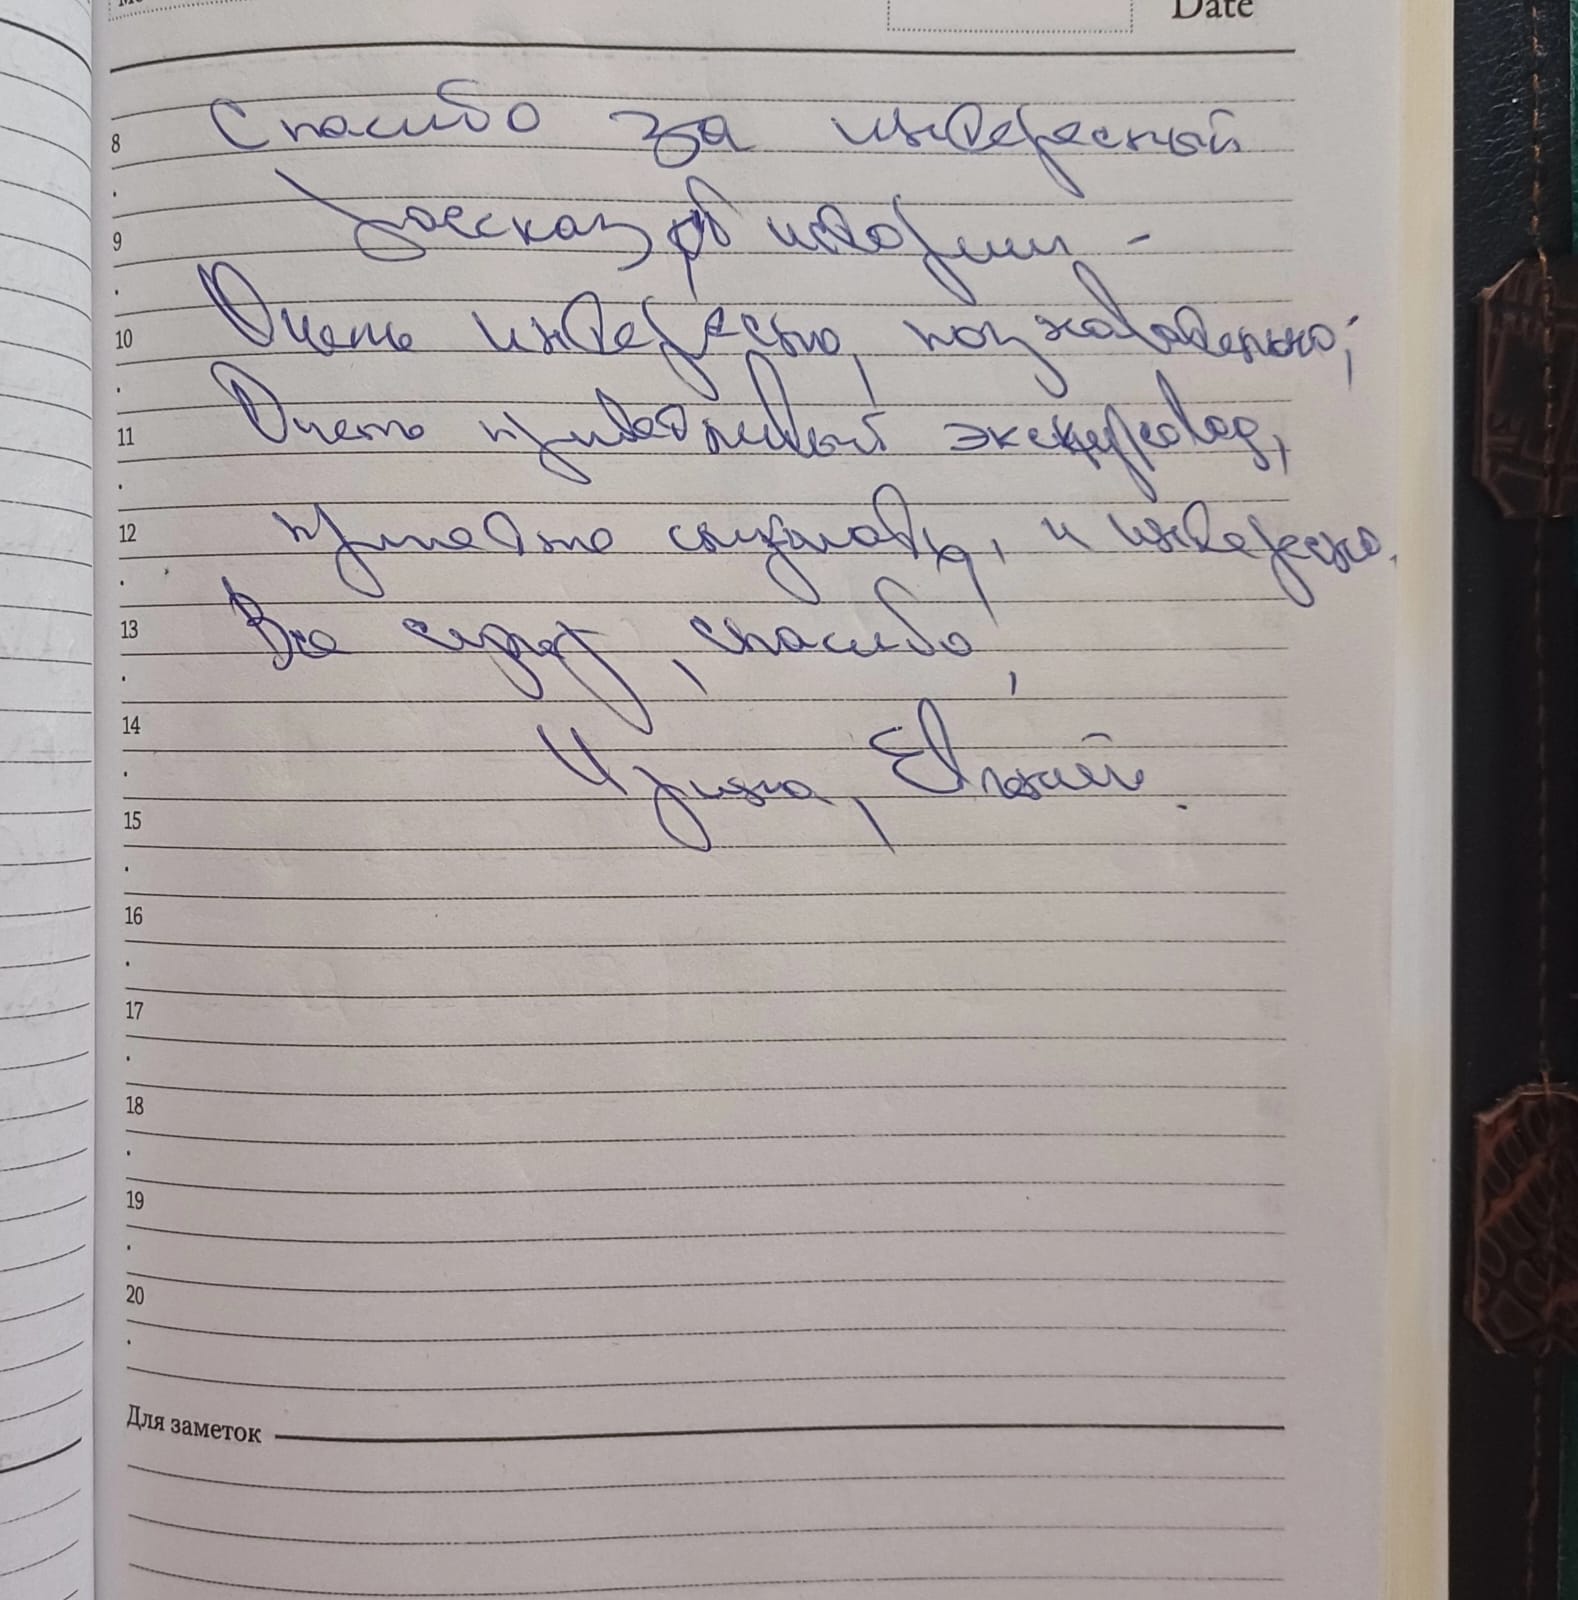 Date
8 Спасибо за интересный
9 рассказ об истории -
10 Очень интересно, познавательно,
11 Очень приветливый экскурсовод,
12 приятно слушать, и интересно.
13 Все супер, спасибо,
14 Ирина, Евгений.
15
16
17
18
19
20
Для заметок